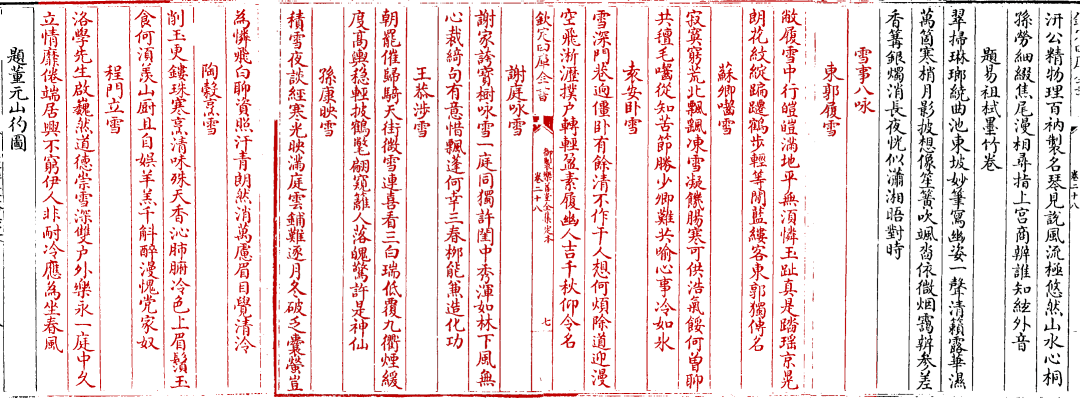 汧公精物理百衲製名琴見說風流極悠然山水心桐
孫勞細綴焦尾漫相尋指上宮商辨誰知絃外音
題易祖栻墨竹卷
翠掃琳瑯繞曲池東坡妙筆寫幽姿一聲清籟露華濕
萬箇寒梢月影披想像笙簧吹颯沓依微烟靄辨參差
香篝銀燭消長夜恍似瀟湘晤對時
雪事八咏
東郭履雪
敝履雪中行皚皚滿地平無須憐玉趾真是踏瑤京晃
朗花紋綻蹁躚鶴步輕等閒藍縷客東郭獨傳名
蘇卿嚙雪
寂寞窮荒北飄飄凍雪凝饑腸寒可供浩氣餒何曾聊
共氊毛嚙從知苦節勝少卿難共喻心事冷如氷
袁安卧雪
雪深門巷迥僵卧有餘清不作干人想何煩除道迎漫
空飛淅瀝撲户轉輕盈素履幽人吉千秋仰令名
欽定四庫全書
御製樂善堂全集定本
卷二十八
七
謝庭咏雪
謝家誇寶樹咏雪一庭同獨許閨中秀渾如林下風無
心裁綺句有意惜飄蓬何幸三春栁能兼造化功
王恭涉雪
朝罷催歸騎天街微雪連喜看三白瑞低覆九衢煙緩
度高輿穩輕披鶴氅翩窺籬人落魄驚許是神仙
孫康映雪
積雪夜談經寒光映滿庭雲鋪難逐月冬破乏囊螢豈
為憐飛白聊資照汗青朗然消萬慮眉目覺清泠
陶穀烹雪
削玉更鏤珠寒烹清味殊天香沁肺腑冷色上眉鬚玉
食何須羨山厨且自娛羊羔千斛醉漫愧党家奴
程門立雪
洛學先生啟巍然道德崇雪深雙户外樂永一庭中久
立情靡倦端居興不窮伊人非耐冷應為坐春風
題董元山的圖